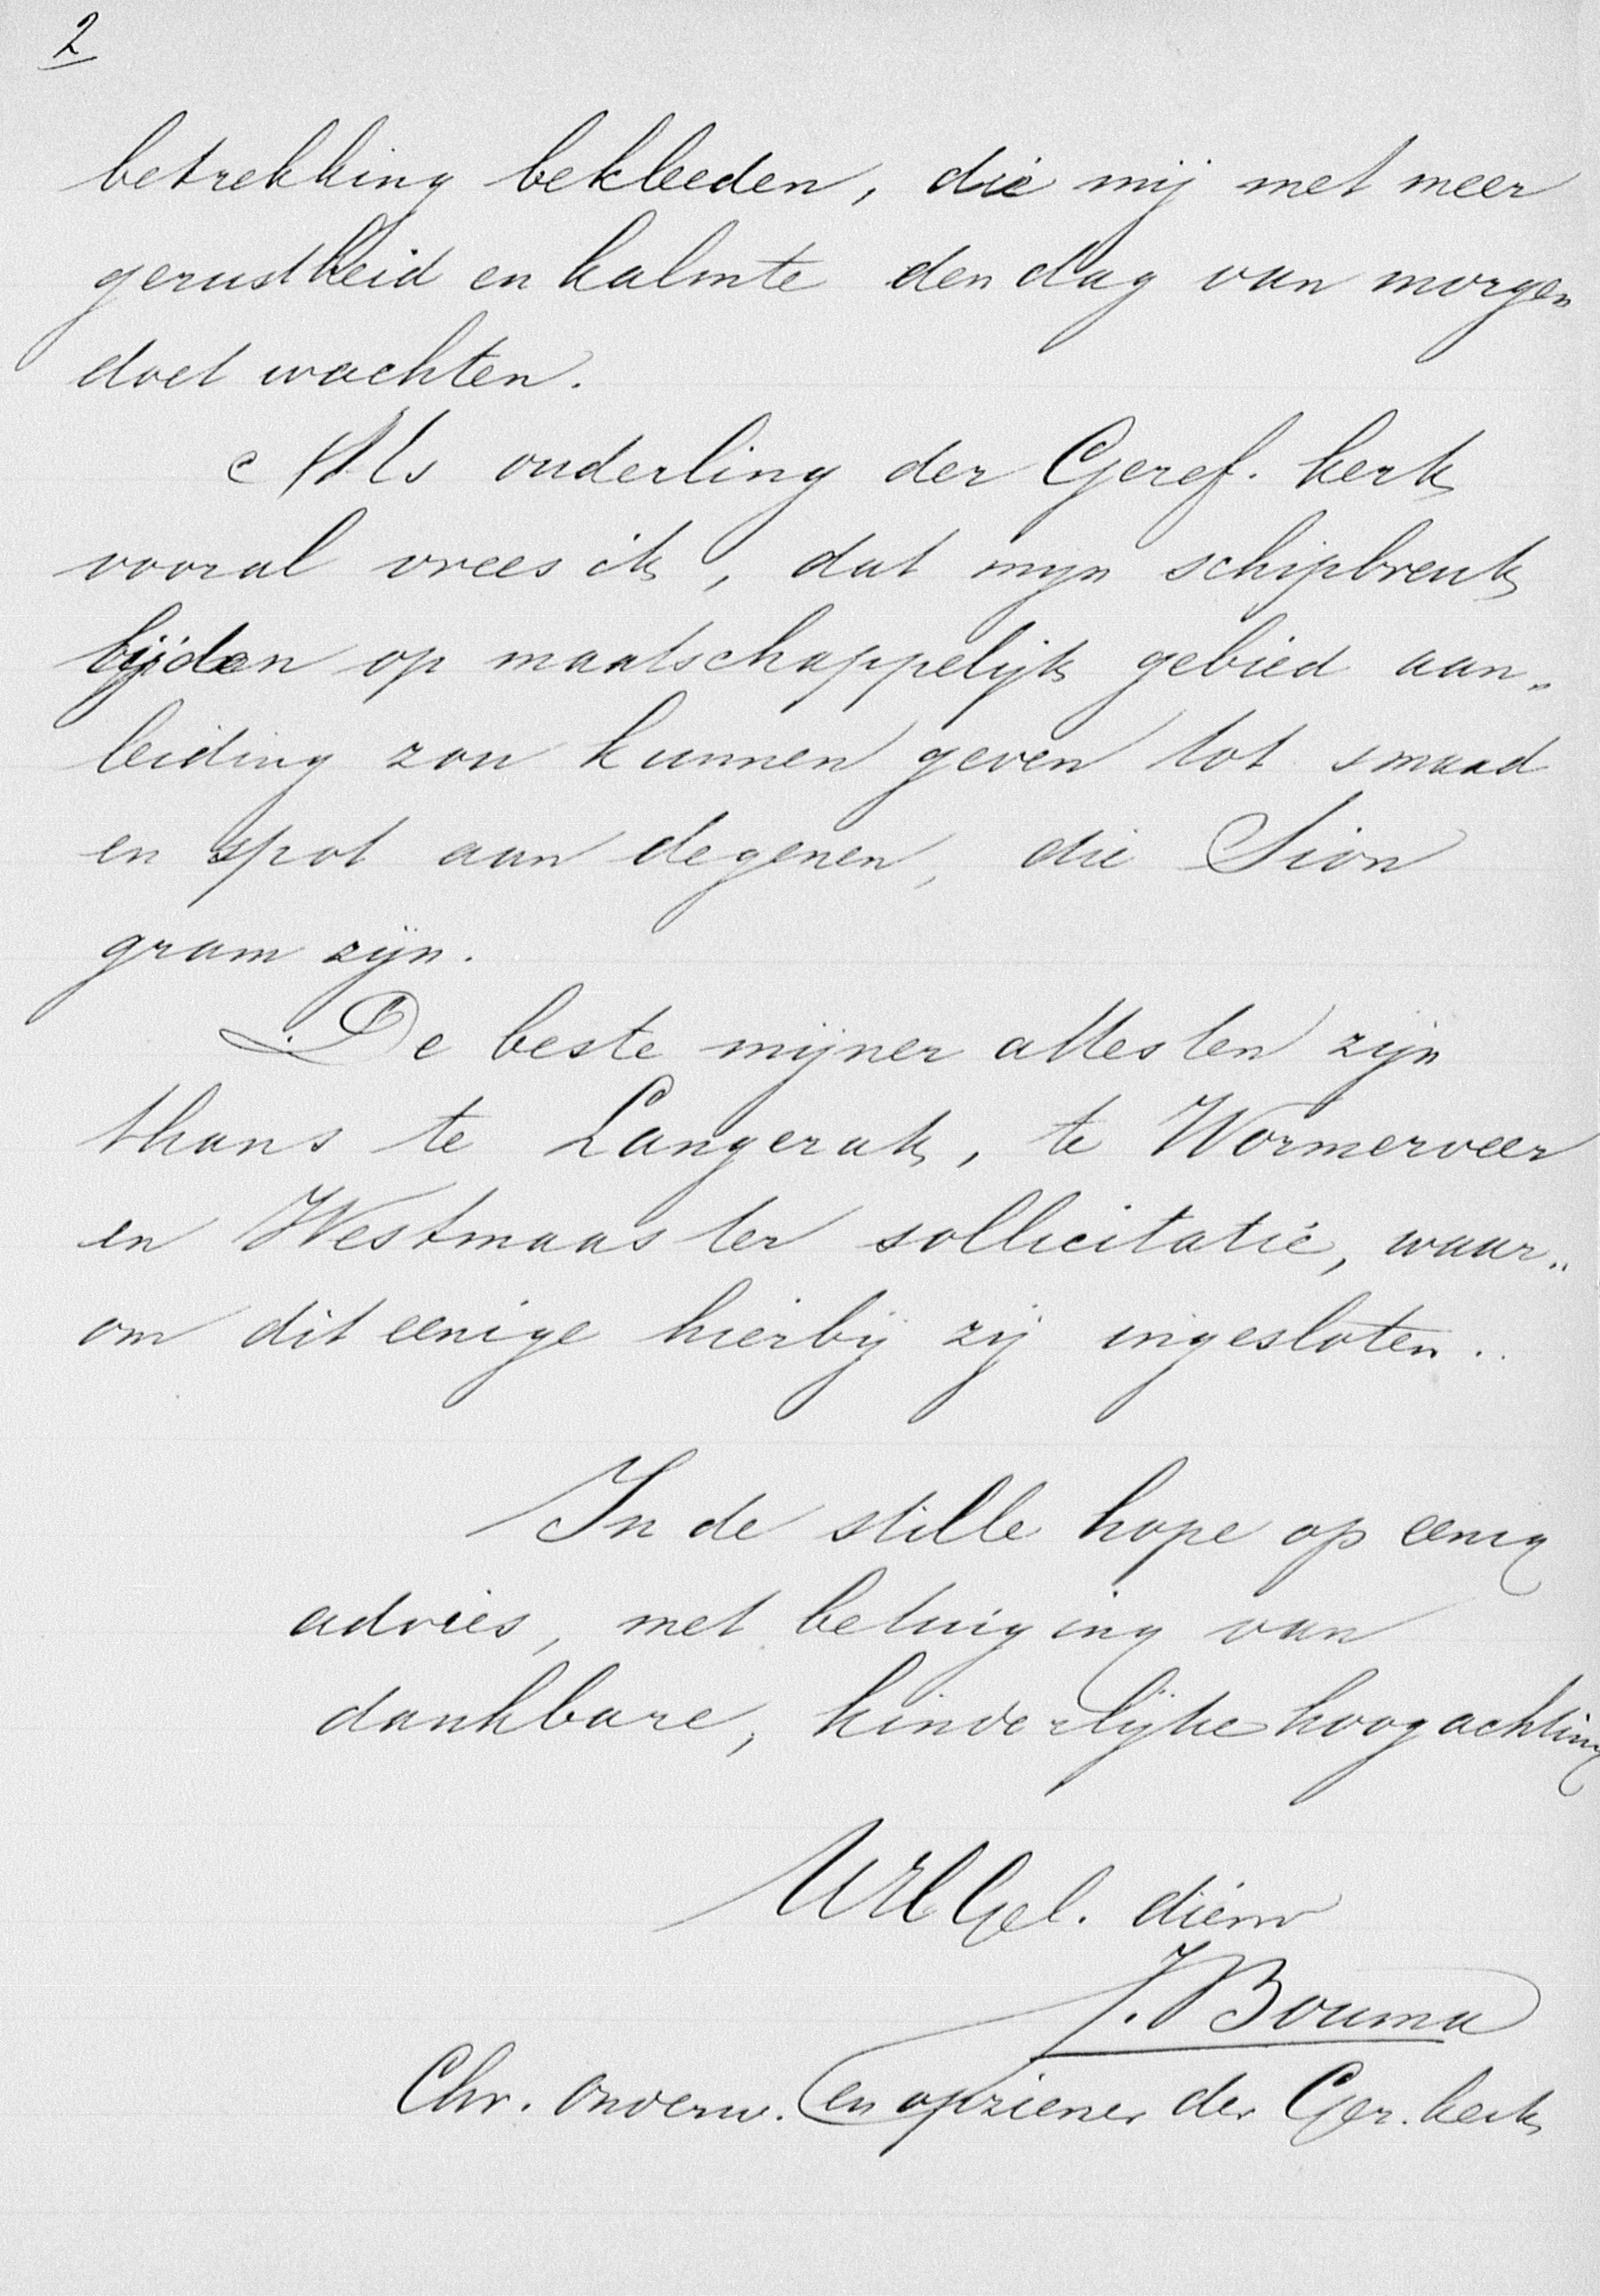 2
betrekking bekleeden, die mij met meer
gerustheid en kalmte den dag van morgen
doet wachten.
Als ouderling der Geref. kerk
vooral vrees ik, dat mijn schipbreuk
lijden op maatschappelijk gebied aan-
leiding zou kunnen geven tot smaad
en spot aan degenen, die Sion
gram zijn.
De beste mijner attesten zijn
thans te Langerak, te Wormerveer
en Westmaas ter sollicitatie, waar-
om dit eenige hierbij zij ingesloten.
In de stille hope op eenig
advies, met betuiging van
dankbare, kinderlijke hoogachting
UHGel. dienr
J. Bouma
Chr. onderw. en opziener der Ger. kerk